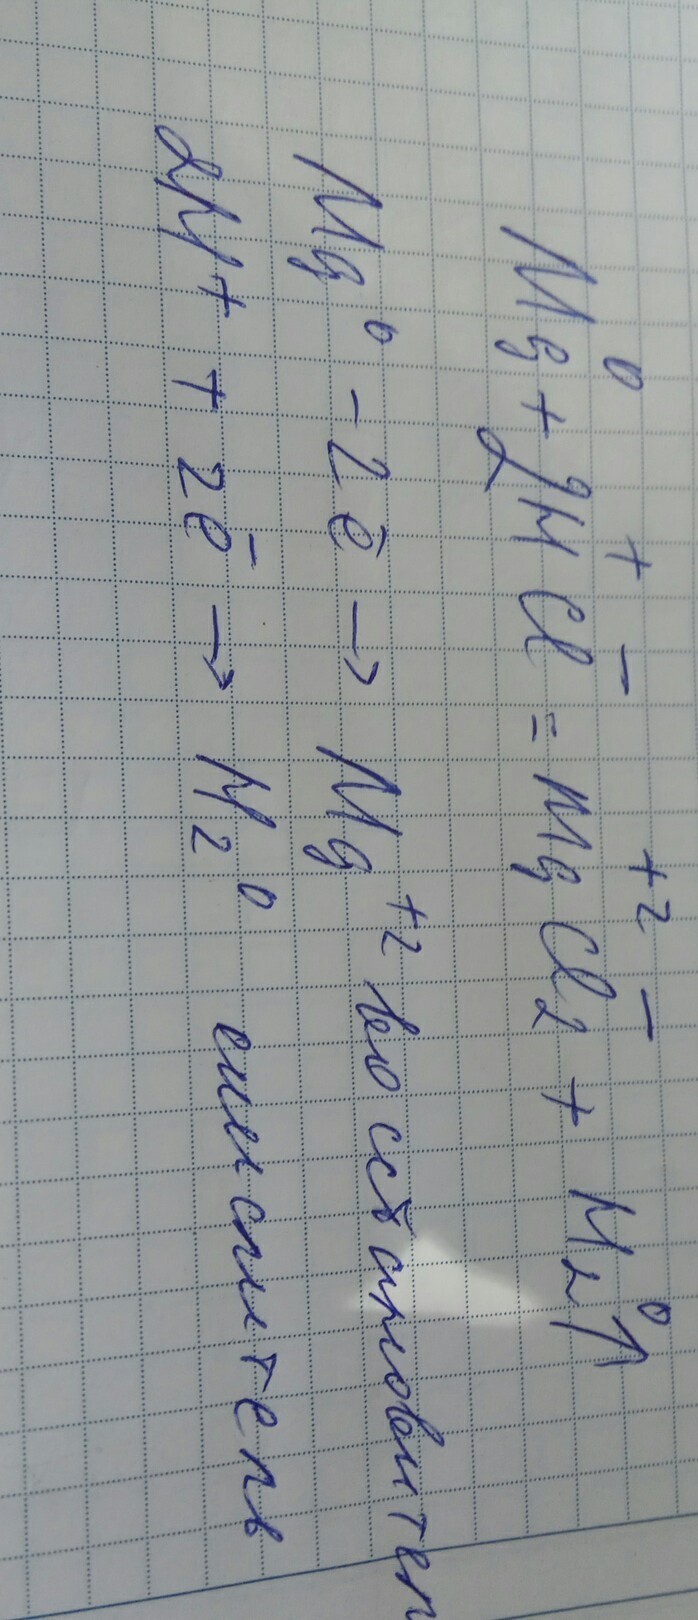 Mg⁰ + 2H⁺Cl⁻ = Mg⁺²Cl₂⁻ + H₂⁰↑
Mg⁰ - 2ē → Mg⁺² восстановител
2H⁺ + 2ē → H₂⁰ окислитель